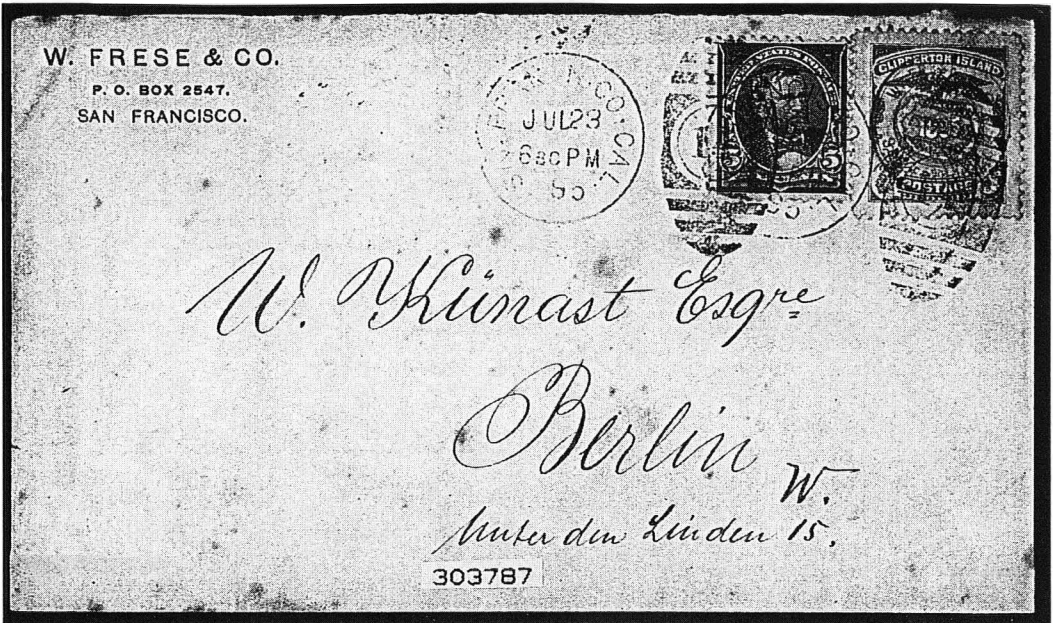 W. FRESE & CO.
P. O. BOX 2547.
SAN FRANCISCO.
CO. CAL.
JUL 23
630 PM
95
UNITED STATES POSTAGE
5 5
CLIPPERTON ISLAND
1895
POSTAGE
W. Künast Esqre
Berlin W.
Unter den Linden 15.
303787